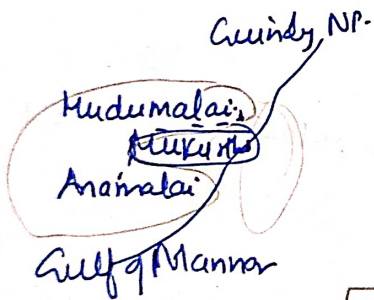 Guindy NP.
Mudumalai
Mukurthi
Anaimalai
Gulf of Mannar